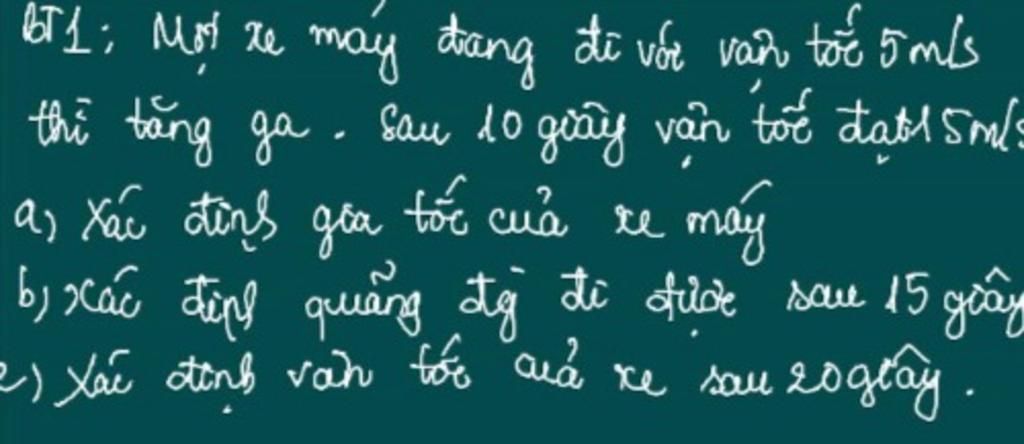 BT1: Một xe máy đang đi với vận tốc 5 m/s
thì tăng ga. Sau 10 giây vận tốc đạt 15m/s
a) Xác định gia tốc của xe máy
b) Xác định quãng đg đi được sau 15 giây
c) Xác định vận tốc của xe sau 20 giây.